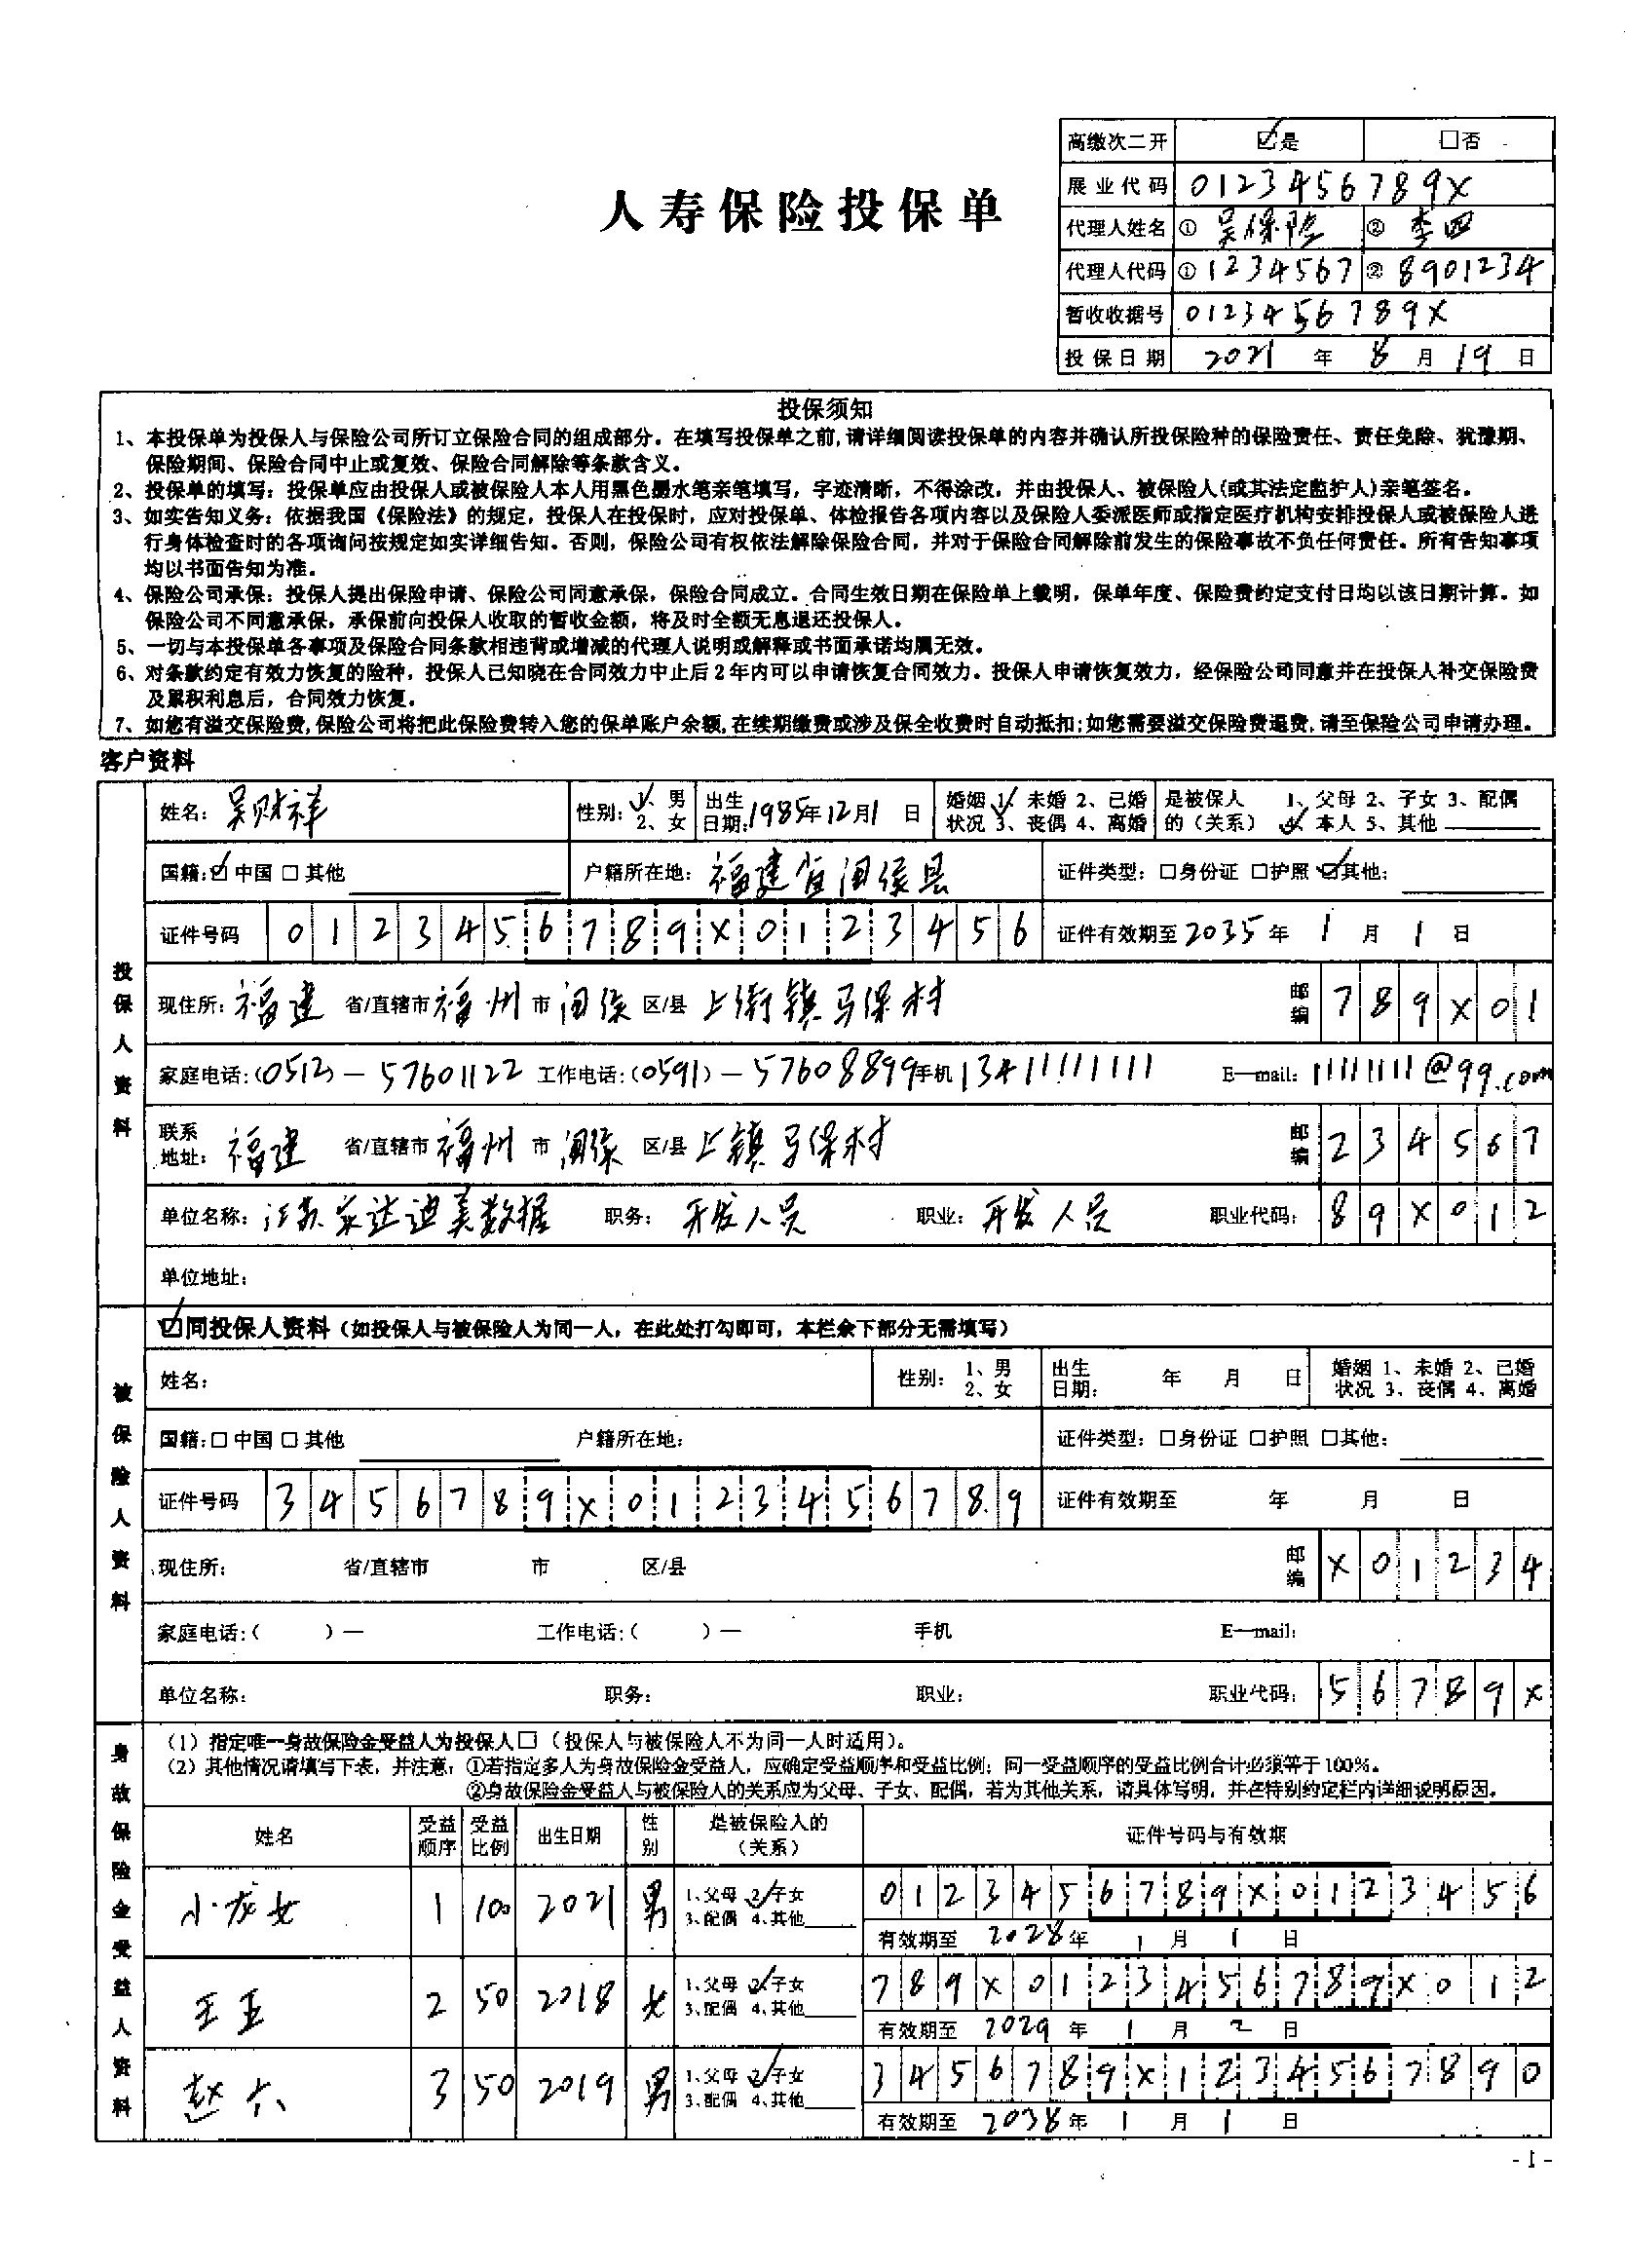 高缴次二开 ☑是 □否
人寿保险投保单
展业代码 0123456789X
代理人姓名 ① 吴保险 ② 李四
代理人代码 ① 1234567 ② 8901234
暂收收据号 0123456789X
投保日期 2021 年 8 月 19 日
投保须知
1、本投保单为投保人与保险公司所订立保险合同的组成部分。在填写投保单之前,请详细阅读投保单的内容并确认所投保险种的保险责任、责任免除、犹豫期、
保险期间、保险合同中止或复效、保险合同解除等条款含义。
2、投保单的填写：投保单应由投保人或被保险人本人用黑色墨水笔亲笔填写，字迹清晰，不得涂改，并由投保人、被保险人(或其法定监护人)亲笔签名。
3、如实告知义务：依据我国《保险法》的规定，投保人在投保时，应对投保单、体检报告各项内容以及保险人委派医师或指定医疗机构安排投保人或被保险人进
行身体检查时的各项询问按规定如实详细告知。否则，保险公司有权依法解除保险合同，并对于保险合同解除前发生的保险事故不负任何责任。所有告知事项
均以书面告知为准。
4、保险公司承保：投保人提出保险申请、保险公司同意承保，保险合同成立。合同生效日期在保险单上载明，保单年度、保险费约定支付日均以该日期计算。如
保险公司不同意承保，承保前向投保人收取的暂收金额，将及时全额无息退还投保人。
5、一切与本投保单各事项及保险合同条款相违背或增减的代理人说明或解释或书面承诺均属无效。
6、对条款约定有效力恢复的险种，投保人已知晓在合同效力中止后2年内可以申请恢复合同效力。投保人申请恢复效力，经保险公司同意并在投保人补交保险费
及累积利息后，合同效力恢复。
7、如您有溢交保险费,保险公司将把此保险费转入您的保单账户余额,在续期缴费或涉及保全收费时自动抵扣;如您需要溢交保险费退费,请至保险公司申请办理。
客户资料
投保人资料
姓名：吴财祥 性别：1、男 2、女 出生日期：1985年12月1日 婚姻状况 1、未婚 2、已婚 3、丧偶 4、离婚 是被保人的（关系） 1、父母 2、子女 3、配偶 4、本人 5、其他
国籍：☑中国 □其他 户籍所在地：福建省闽侯县 证件类型：□身份证 □护照 ☑其他：
证件号码 0123456789X0123456 证件有效期至2035年 1 月 1 日
现住所：福建 省/直辖市 福州 市 闽侯 区/县 上街镇马保村 邮编 789X01
家庭电话:(0512)— 57601122 工作电话:(0591)— 57608899 手机 13411111111 E—mail：11111111@qq.com
联系地址：福建 省/直辖市 福州 市 闽侯 区/县 上镇马保村 邮编 234567
单位名称：江苏永达迪美数据 职务：开发人员 职业：开发人员 职业代码：89X012
单位地址：
被保险人资料
☑同投保人资料（如投保人与被保险人为同一人，在此处打勾即可，本栏余下部分无需填写）
姓名： 性别：1、男 2、女 出生日期： 年 月 日 婚姻状况 1、未婚 2、已婚 3、丧偶 4、离婚
国籍：□中国 □其他 户籍所在地： 证件类型：□身份证 □护照 □其他：
证件号码 3456789X0123456789 证件有效期至 年 月 日
现住所： 省/直辖市 市 区/县 邮编 X01234
家庭电话:( )— 工作电话:( )— 手机 E—mail：
单位名称： 职务： 职业： 职业代码：56789X
身故保险金受益人资料
（1）指定唯一身故保险金受益人为投保人□（投保人与被保险人不为同一人时适用）。
（2）其他情况请填写下表，并注意：①若指定多人为身故保险金受益人，应确定受益顺序和受益比例；同一受益顺序的受益比例合计必须等于100%。
②身故保险金受益人与被保险人的关系应为父母、子女、配偶，若为其他关系，请具体写明，并在特别约定栏内详细说明原因。
姓名 受益顺序 受益比例 出生日期 性别 是被保险人的（关系） 证件号码与有效期
小龙女 1 100 2021 男 1、父母 2、子女 3、配偶 4、其他 0123456789X0123456
有效期至 2028年 1 月 1 日
王五 2 50 2018 女 1、父母 2、子女 3、配偶 4、其他 789X0123456789X012
有效期至 2029 年 1 月 2 日
赵六 3 50 2019 男 1、父母 2、子女 3、配偶 4、其他 3456789X1234567890
有效期至 2038年 1 月 1 日
- 1 -